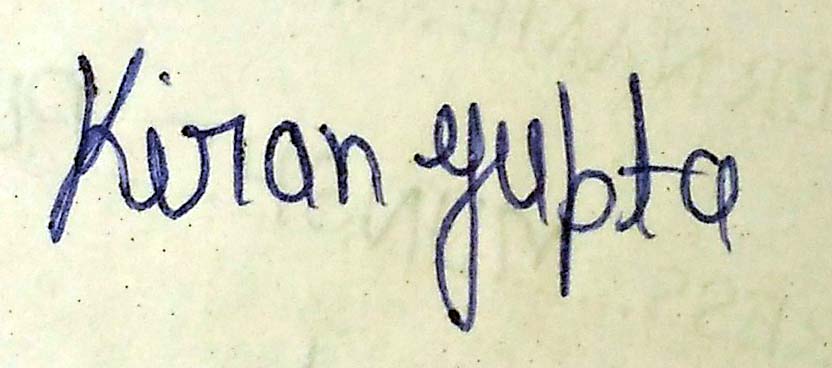 Kiran gupta